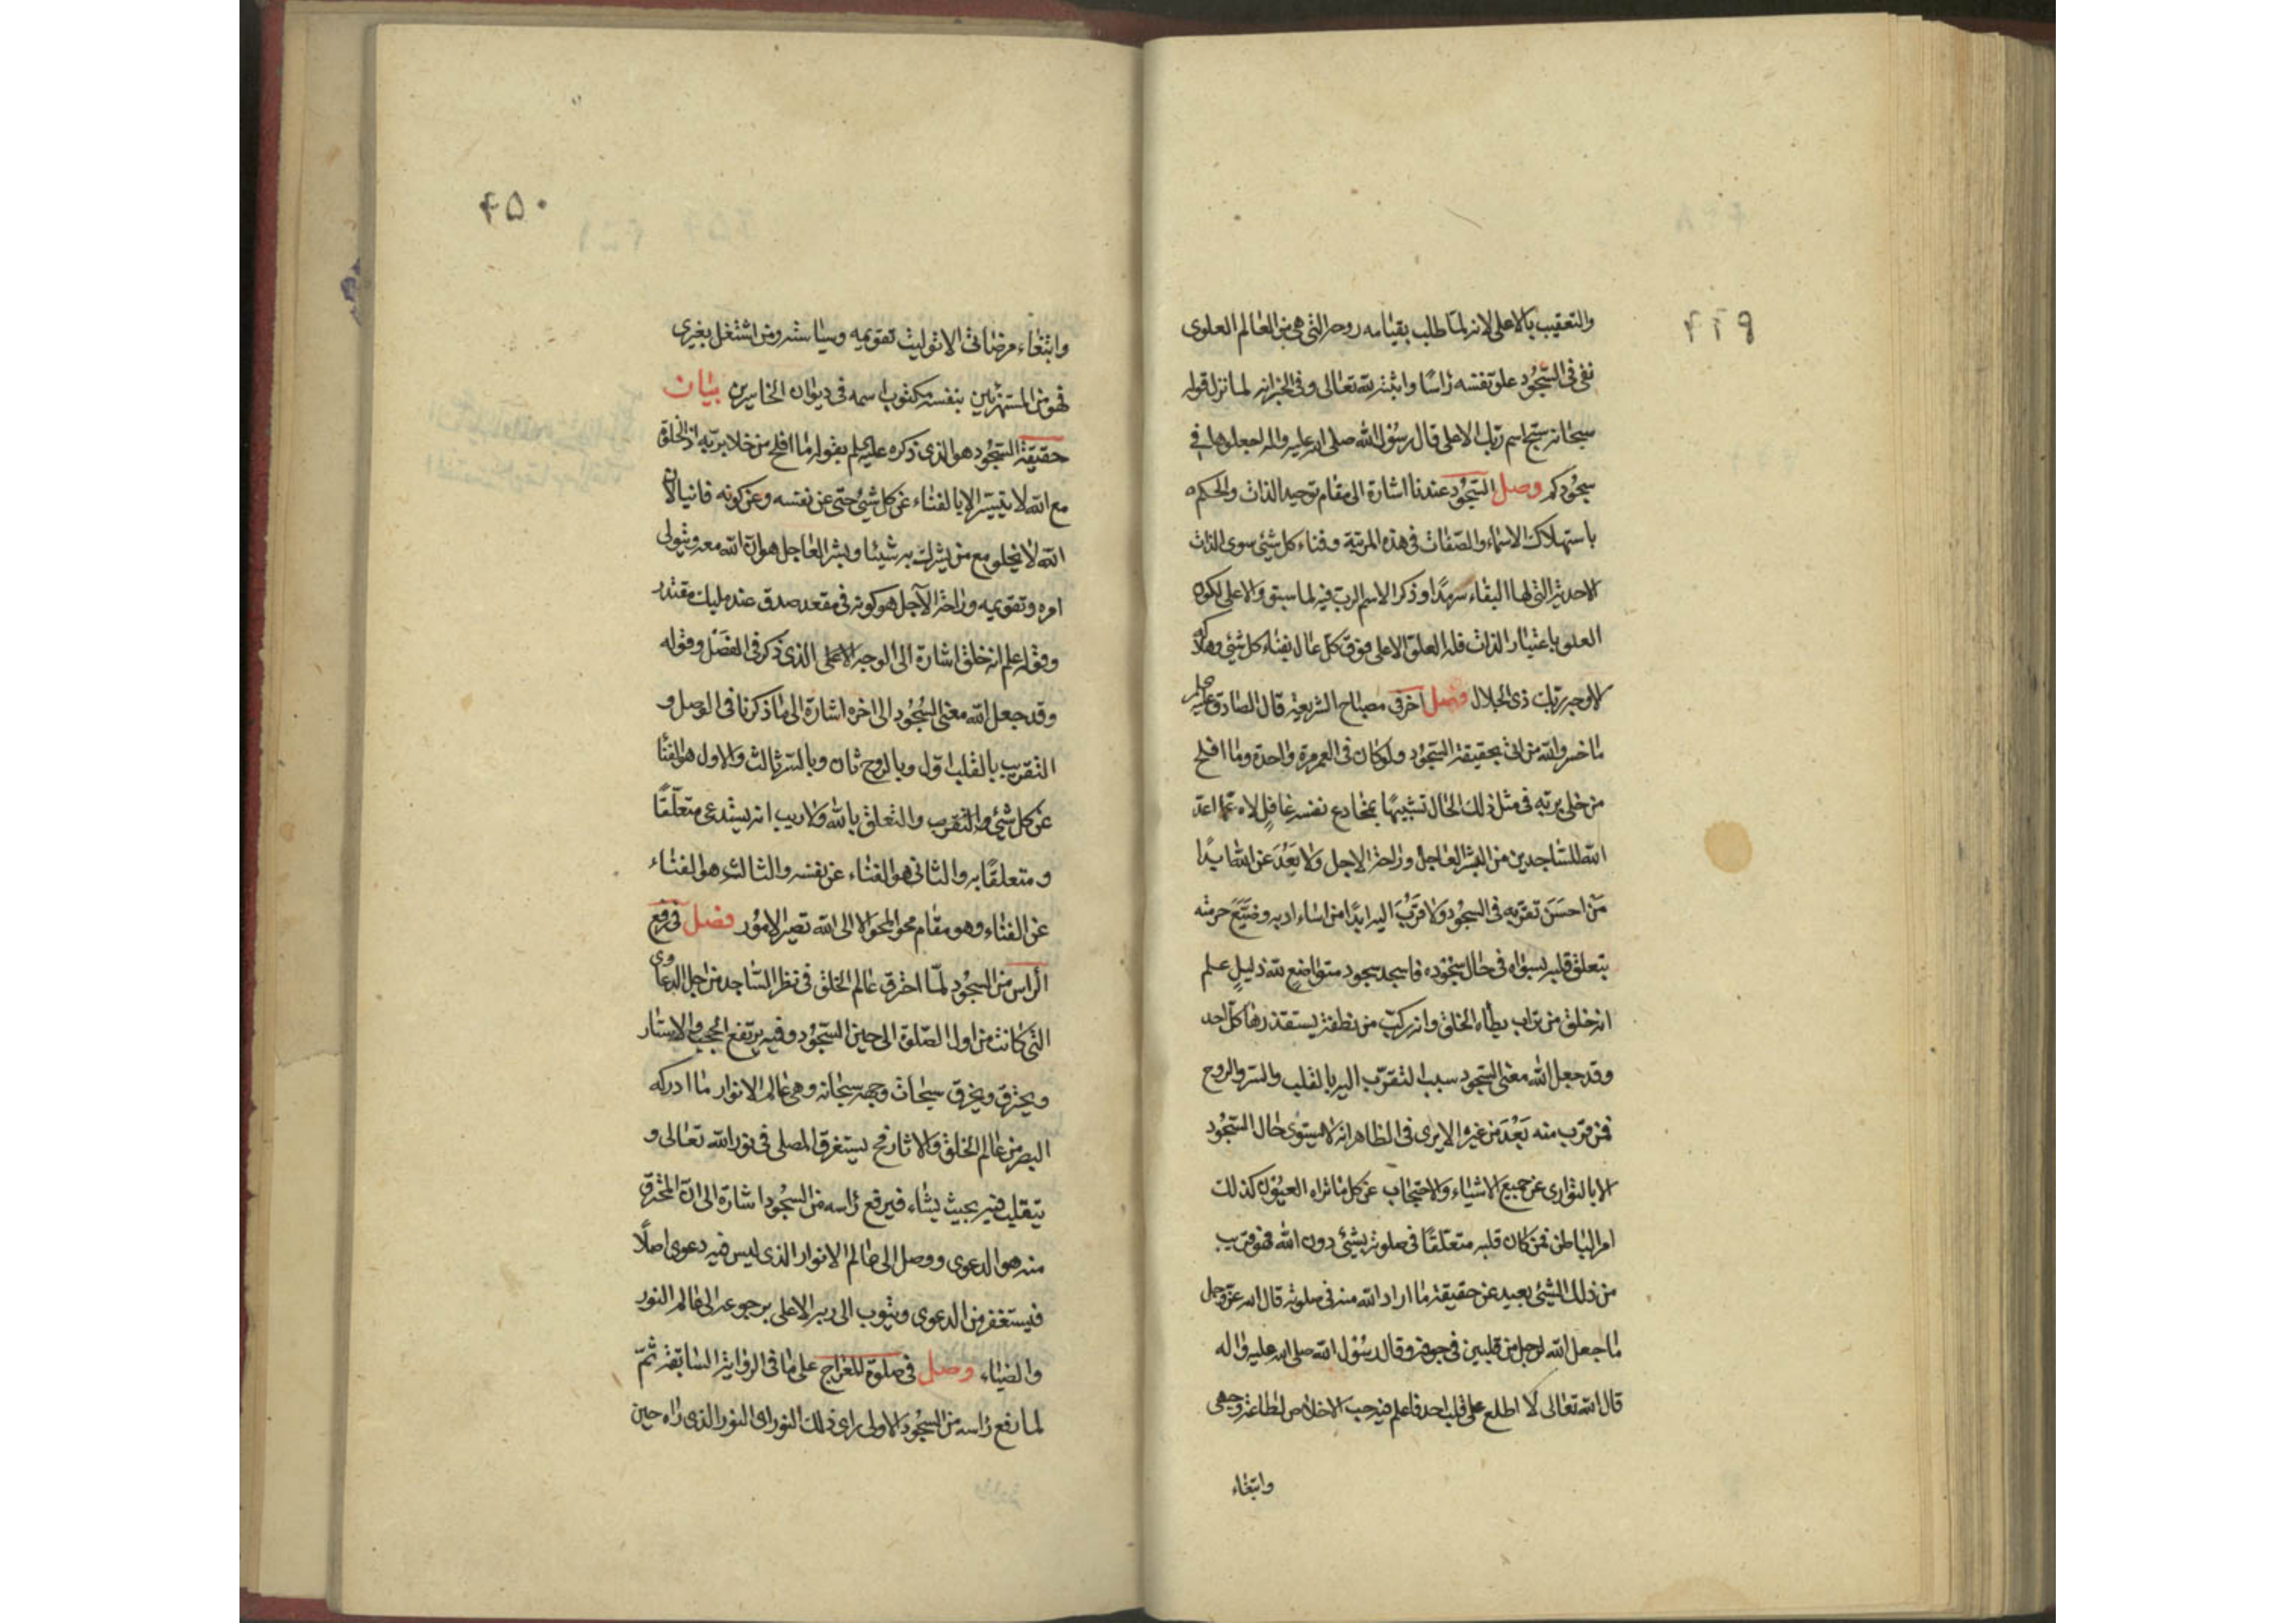 ۴۴۹
والتعقيب بالاعلى لانه لما طلب بقيامه روحه التى هى من العالم العلوى
نفى فى السّجُود علو نفسه رٰاسًا واثبته لله تعالى وفى الخبر انه لما نزل قوله
سبحانه سبّح اسم ربّك الاعلى قال رسُول الله صلى الله عليه واله اجعلوها فى
سجُودكم وصل السّجُود عندنا اشارة الى مقام توحيد الذات والحكم
باستهلاك الاسماء والصّفات فى هذه المرتبة وفناء كل شئ سوى الذات
الاحدية التى لها البقاء سرمدًا وذكر الاسم الرب فيه لما سبق والاعلى لكون
العلو باعتبار الذات فله العلوّ الاعلى فوق كلّ عال بفناء كل شئ وهلاكه
الا وجه ربك ذى الجلال فصل اخر فى مصباح الشريعة قال الصادق عليه السلم
ما خسر والله من اتى بحقيقة السّجُود ولو كان فى العمر مرة واحدة وما افلح
من خلى بربّه فى مثل ذلك الحال تشبيهًا بمخادع نفسه غافلٍ لاه عمّا اعدّ
الله للسّاجدين من البشر العاجل وراحة الاجل ولا بَعُدَ عن الله ابدًا
مَن احسَنَ تقرّبه فى السجُود ولا قرُبَ اليه ابدًا من اساء ادبه وضيَّعَ حرمته
بتعلق قلبه بسواه فى حال سجُوده فاسجد سجود متواضعٍ لله ذليلٍ علم
انه خلق من تراب يطأه الخلق وانه ركّب من نطفة يستقذرها كلّ احد
وقد جعل الله معنى السّجود سبب التقرّب اليه بالقلب والسّر والروح
فمن قرب منه بَعُدَ من غيره الا يرى فى الظاهر انه لا يستوى حال السّجُود
الا بالتوارى عن جميع الاشياء والاحتجاب عن كل ما تراه العيُون كذلك
امر الباطن فمن كان قلبه متعلّقًا فى صلوته بشئ دون الله فهو قريب
من ذلك الشئ بعيد عن حقيقة ما اراد الله منه فى صلوته قال الله عزّ وجل
ما جعل الله لرجل من قلبين فى جوفه وقال رسُول الله صلى الله عليه واله
قال الله تعالى لا اطلع على قلب احد فاعلم فيه حب الاخلاص لطاعتى وجهى
وابتغاء
۴۵۰
وابتغاء مرضاتى الا توليت تقويمه وسياسته ومن اشتغل بغيرى
فهو من المستهزئين بنفسه مكتوب اسمه فى ديوان الخاسرين بيان
حقيقة السّجُود هو الذى ذكره عليه السلم بقوله ما افلح من خلا بربّه اذ الخلوة
مع الله لا يتيسّر الا بالفناء عن كل شئ حتى عن نفسه وعن كونه فانيا لان
الله لا يخلو مع من يشرك به شيئا وبشر العاجل هو ان الله معه ويتولى
امره وتقويمه وراحة الآجل هو كونه فى مقعد صدق عند مليك مقتدر
وقوله علم انه خلق اشارة الى الوجه الاعلى الذى ذكر فى الفَصْل وقوله
وقد جعل الله معنى السُجُود الى اخره اشارة الى ما ذكرنا فى الوصل و
التقرب بالقلب اوّل وبالروح ثان وبالسّر ثالث والاول هو الفنا
عن كل شئ والتقرب والتعلق بالله ولا ريب انه يستدعى متعلّقًا
ومتعلقًا به والثانى هو الفناء عن نفسه والثالث هو الفناء
عن الفناء وهو مقام محو المحو الا الى الله تصير الامُور فصل فى رفع
الرأس من السجُود لمّا احترق عالم الخلق فى نظر السّاجد من اجل الدعاوى
التى كانت من اول الصّلوة الى حين السّجُود وفيه يرتفع الحجب والاستار
ويحترق ويخرق سبحات وجهه سبحانه وهى عالم الانوار ما ادركه
البصر من عالم الخلق والاثار فح يستغرق المصلى فى نور الله تعالى و
يتقلب فيه بحيث يشاء فيرفع رٰاسه من السجُود اشارة الى انّ المخترق
منه هو الدعوى ووصل الى عالم الانوار الذى ليس فيه دعوى اصلًا
فيستغفر من الدعوى ويتوب الى ربه الاعلى برجوعه الى عالم النور
والضياء وصل فى صلوة المعراج على ما فى الرواية السابقة ثمّ
لما رفع رٰاسه من السجُود الاولى راى ذلك النور اى النور الذى رٰاه حين